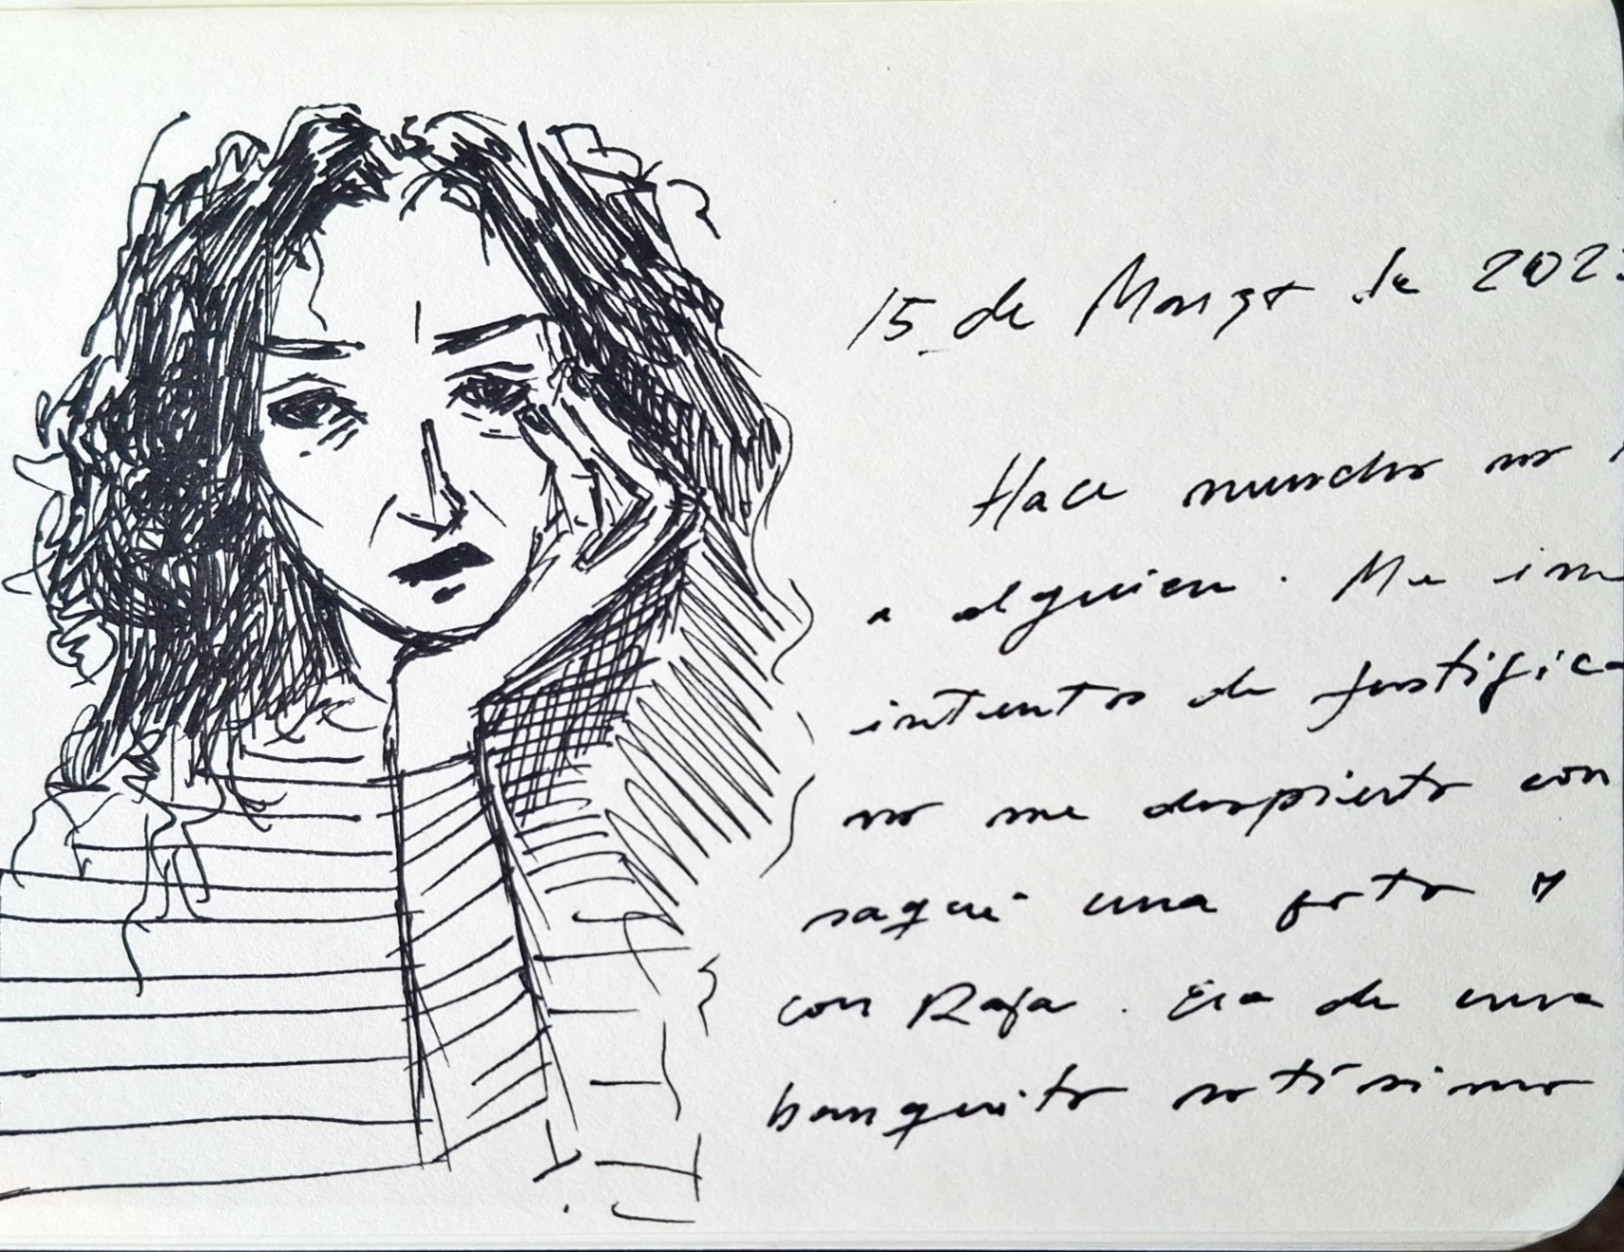 15 de Marzo de 202
Hace mucho no
a alguien. Me im
intentos de justifica
no me despierto con
saqué una foto y
con Rafa. Era de una
banquito rotísimo